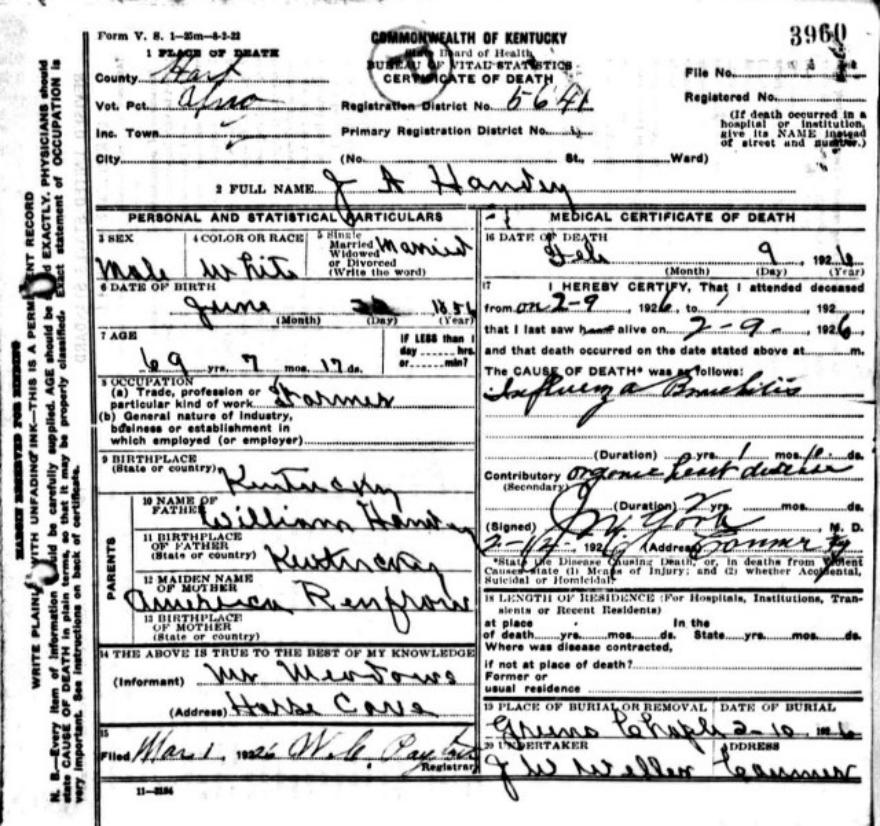 Form V. S. 1-25m-8-2-22
COMMONWEALTH OF KENTUCKY
State Board of Health
BUREAU OF VITAL STATISTICS
CERTIFICATE OF DEATH
3960
1 PLACE OF DEATH
County Hart
Vot. Pct.
Inc. Town
City
Registration District No. 5641
Primary Registration District No.
(No. St., Ward)
File No.
Registered No.
(If death occurred in a
hospital or institution,
give its NAME instead
of street and number.)
2 FULL NAME J A Handy
PERSONAL AND STATISTICAL PARTICULARS
3 SEX
Male
4 COLOR OR RACE
White
5 Single
Married
Widowed
or Divorced
(Write the word)
Married
6 DATE OF BIRTH
June 1856
(Month) (Day) (Year)
7 AGE
69 yrs. 7 mos. 17 ds.
IF LESS than 1
day hrs.
or min?
8 OCCUPATION
(a) Trade, profession or
particular kind of work Farmer
(b) General nature of Industry,
business or establishment in
which employed (or employer)
9 BIRTHPLACE
(State or country) Kentucky
PARENTS
10 NAME OF
FATHER William Handy
11 BIRTHPLACE
OF FATHER
(State or country) Kentucky
12 MAIDEN NAME
OF MOTHER
America Renfrow
13 BIRTHPLACE
OF MOTHER
(State or country)
14 THE ABOVE IS TRUE TO THE BEST OF MY KNOWLEDGE
(Informant) Mr Meadows
(Address) Horse Cave
15
Filed Mar 1, 1926 W. C.
Registrar
11-3184
MEDICAL CERTIFICATE OF DEATH
16 DATE OF DEATH
Feb 9, 1926
(Month) (Day) (Year)
17 I HEREBY CERTIFY, That I attended deceased
from on 2-9, 1926, to , 192
that I last saw h alive on 2-9-, 1926
and that death occurred on the date stated above at m.
The CAUSE OF DEATH* was as follows:
Influenza Bronchitis
(Duration) yrs. 1 mos. 10 ds.
Contributory organic heart disease
(Secondary)
(Duration) 2 yrs. mos. ds.
(Signed) York, M. D.
192 (Address)
*State the Disease Causing Death, or, in deaths from Violent
Causes state (1) Means of Injury; and (2) whether Accidental,
Suicidal or Homicidal.
18 LENGTH OF RESIDENCE (For Hospitals, Institutions, Tran-
sients or Recent Residents)
at place In the
of death yrs. mos. ds. State yrs. mos. ds.
Where was disease contracted,
if not at place of death?
Former or
usual residence
19 PLACE OF BURIAL OR REMOVAL DATE OF BURIAL
Greens Chapel 2-10 1926
20 UNDERTAKER ADDRESS
J W Weller Canmer
MARGIN RESERVED FOR BINDING
WRITE PLAINLY WITH UNFADING INK—THIS IS A PERMANENT RECORD
N. B.—Every item of information should be carefully supplied. AGE should be stated EXACTLY. PHYSICIANS should
state CAUSE OF DEATH in plain terms, so that it may be properly classified. Exact statement of OCCUPATION is
very important. See instructions on back of certificate.